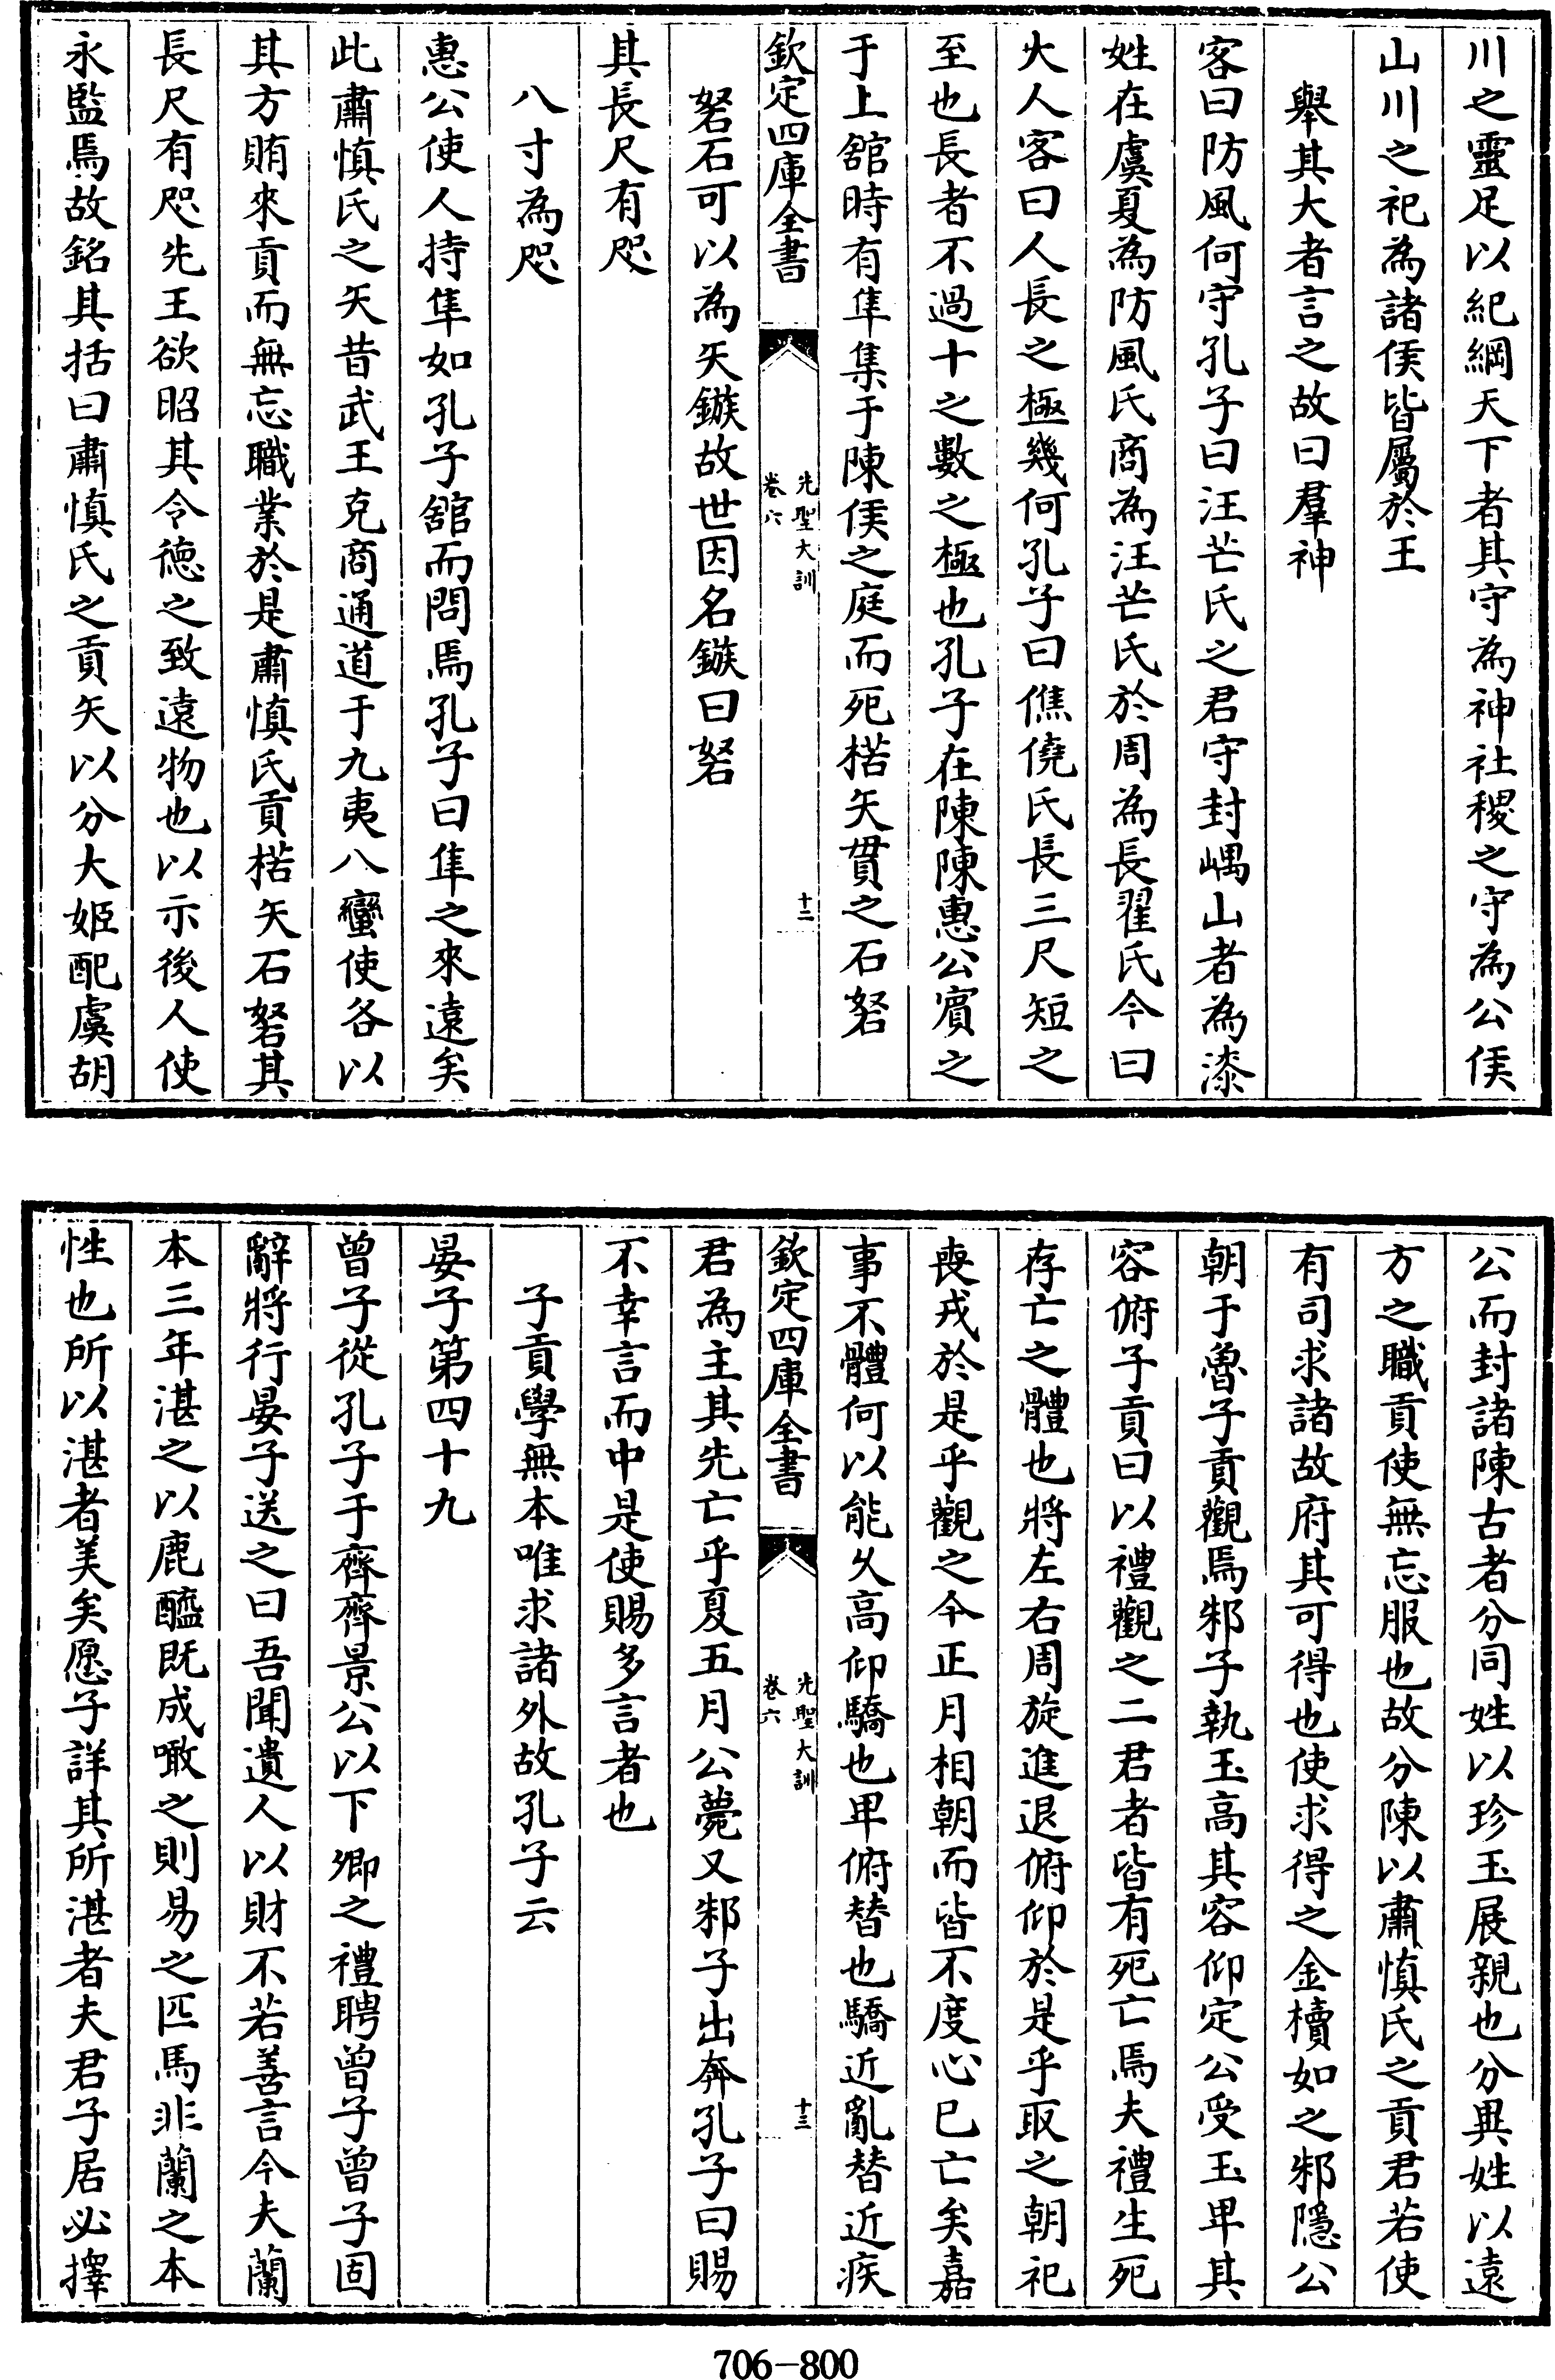 川之靈足以紀綱天下者其守為神社稷之守為公侯
山川之祀為諸侯皆屬於王
舉其大者言之故曰羣神
客曰防風何守孔子曰汪芒氏之君守封嵎山者為漆
姓在虞夏為防風氏商為汪芒氏於周為長翟氏今曰
大人客曰人長之極幾何孔子曰僬僥氏長三尺短之
至也長者不過十之數之極也孔子在陳陳惠公賓之
于上舘時有隼集于陳侯之庭而死楛矢貫之石砮
欽定四庫全書
先聖大訓
卷六
十二
砮石可以為矢鏃故世因名鏃曰砮
其長尺有咫
八寸為咫
惠公使人持隼如孔子舘而問焉孔子曰隼之來遠矣
此肅慎氏之矢昔武王克商通道于九夷八蠻使各以
其方賄來貢而無忘職業於是肅慎氏貢楛矢石砮其
長尺有咫先王欲昭其令德之致遠物也以示後人使
永監焉故銘其括曰肅慎氏之貢矢以分大姬配虞胡
公而封諸陳古者分同姓以珍玉展親也分異姓以遠
方之職貢使無忘服也故分陳以肅慎氏之貢君若使
有司求諸故府其可得也使求得之金櫝如之邾隱公
朝于魯子貢觀焉邾子執玉高其容仰定公受玉卑其
容俯子貢曰以禮觀之二君者皆有死亡焉夫禮生死
存亡之體也將左右周旋進退俯仰於是乎取之朝祀
喪戎於是乎觀之今正月相朝而皆不度心已亡矣嘉
事不體何以能乆高仰驕也卑俯替也驕近亂替近疾
欽定四庫全書
先聖大訓
卷六
十三
君為主其先亡乎夏五月公薨又邾子出奔孔子曰賜
不幸言而中是使賜多言者也
子貢學無本唯求諸外故孔子云
晏子第四十九
曾子從孔子于齊齊景公以下卿之禮聘曾子曾子固
辭將行晏子送之曰吾聞遺人以財不若善言今夫蘭
本三年湛之以鹿醢既成噉之則易之匹馬非蘭之本
性也所以湛者美矣愿子詳其所湛者夫君子居必擇
706-800